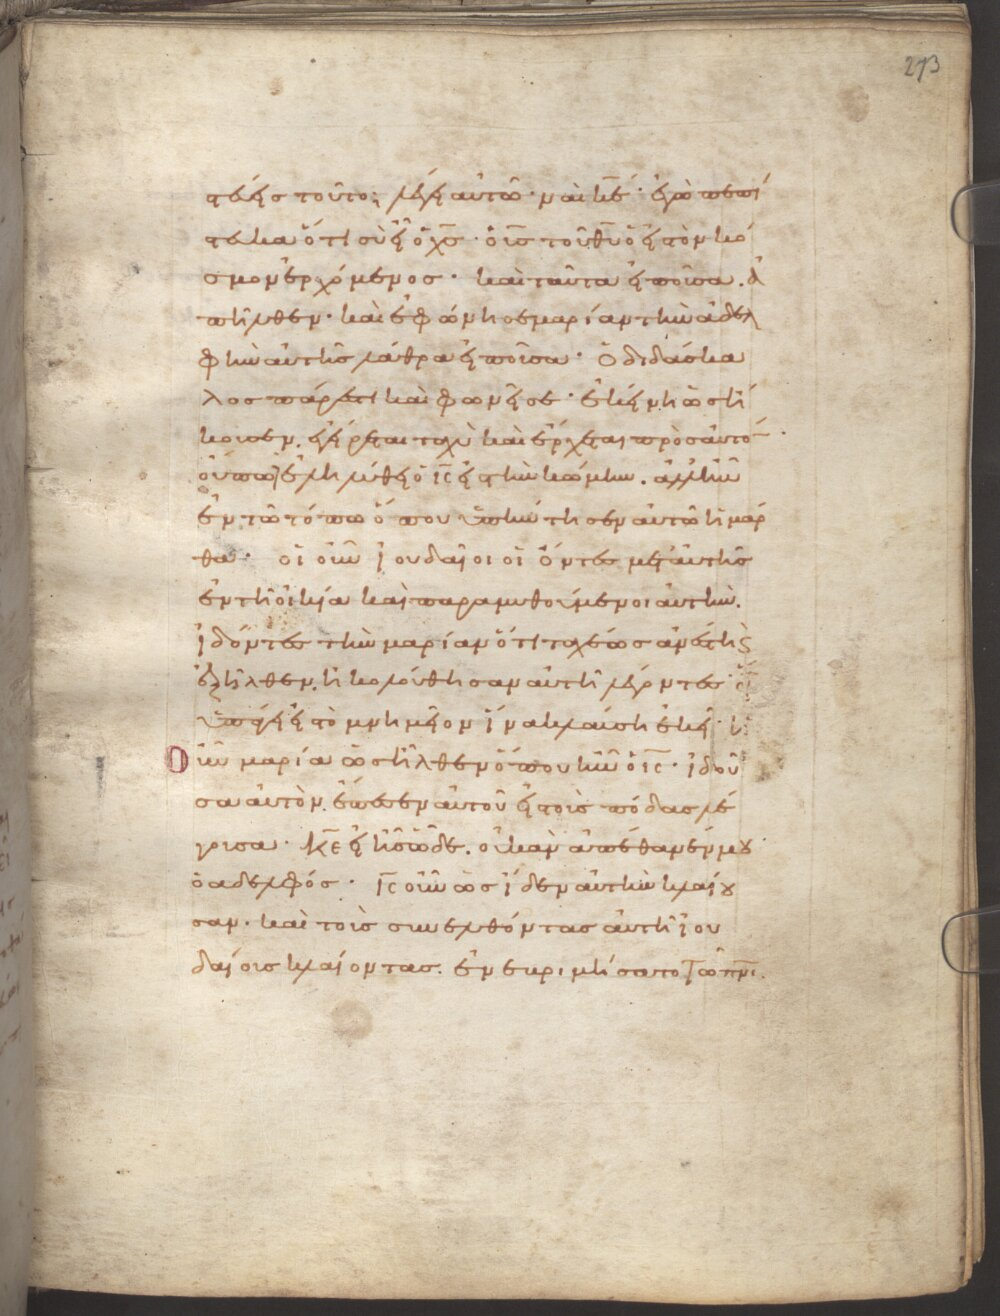 273
στεύεις τοῦτο; λέγει αὐτῶ· ναὶ κ̅ε̅· ἐγὼ πεπί
στευκα ὅτι σὺ εἶ ὁ χ̅ς̅· ὁ υ̅ς̅ τοῦ θ̅υ̅ ὁ εἰς τὸν κό
σμον ἐρχόμενος· καὶ ταῦτα εἰποῦσα. ἀ
πῆλθεν· καὶ ἐφώνησε μαρίαν τὴν ἀδελ
φὴν αὐτῆς λάθρα εἰποῦσα· Ὁ διδάσκα
λος πάρεστι καὶ φωνεῖ σε· ἐκείνη ὡς ἤ
κουσεν. ἐγείρεται ταχὺ καὶ ἔρχεται πρὸς αὐτό̅·
οὔπω δὲ ἐληλύθει ὁ ι̅ς̅ εἰς τὴν κώμην. ἀλλ ἦν
ἐν τῶ τόπω ὅπου ὑπήντησεν αὐτῶ ἡ μάρ
θα· οἱ οὖν ἰουδαῖοι οἱ ὄντες μετ αὐτῆς
ἐν τῆ οἰκία καὶ παραμυθούμενοι αὐτήν.
ἰδόντες τὴν μαρίαν ὅτι ταχέως ἀνέστη ϗ
ἐξῆλθεν. ἠκολούθησαν αὐτῆ λέγοντες· ὅτι
ὑπάγει εἰς τὸ μνημεῖον ἵνα κλαύση ἐκεῖ· ἡ
οὖν μαρία ὡς ἦλθεν ὅπου ἦν ὁ ι̅ς̅· ἰδοῦ
σα αὐτὸν. ἔπεσεν αὐτοῦ εἰς τοὺς πόδας λέ
γουσα· Κ̅ε̅ εἰ ἦς ὧδε. οὐκ ἂν ἀπέθανέν μου
ὁ ἀδελφός· Ι̅ς̅ οὖν ὡς ἴδεν αὐτὴν κλαίου
σαν· καὶ τοὺς συνελθόντας αὐτῆ ἰου
δαίους κλαίοντας. ἐνεβριμήσατο τῶ π̅ν̅ι̅.